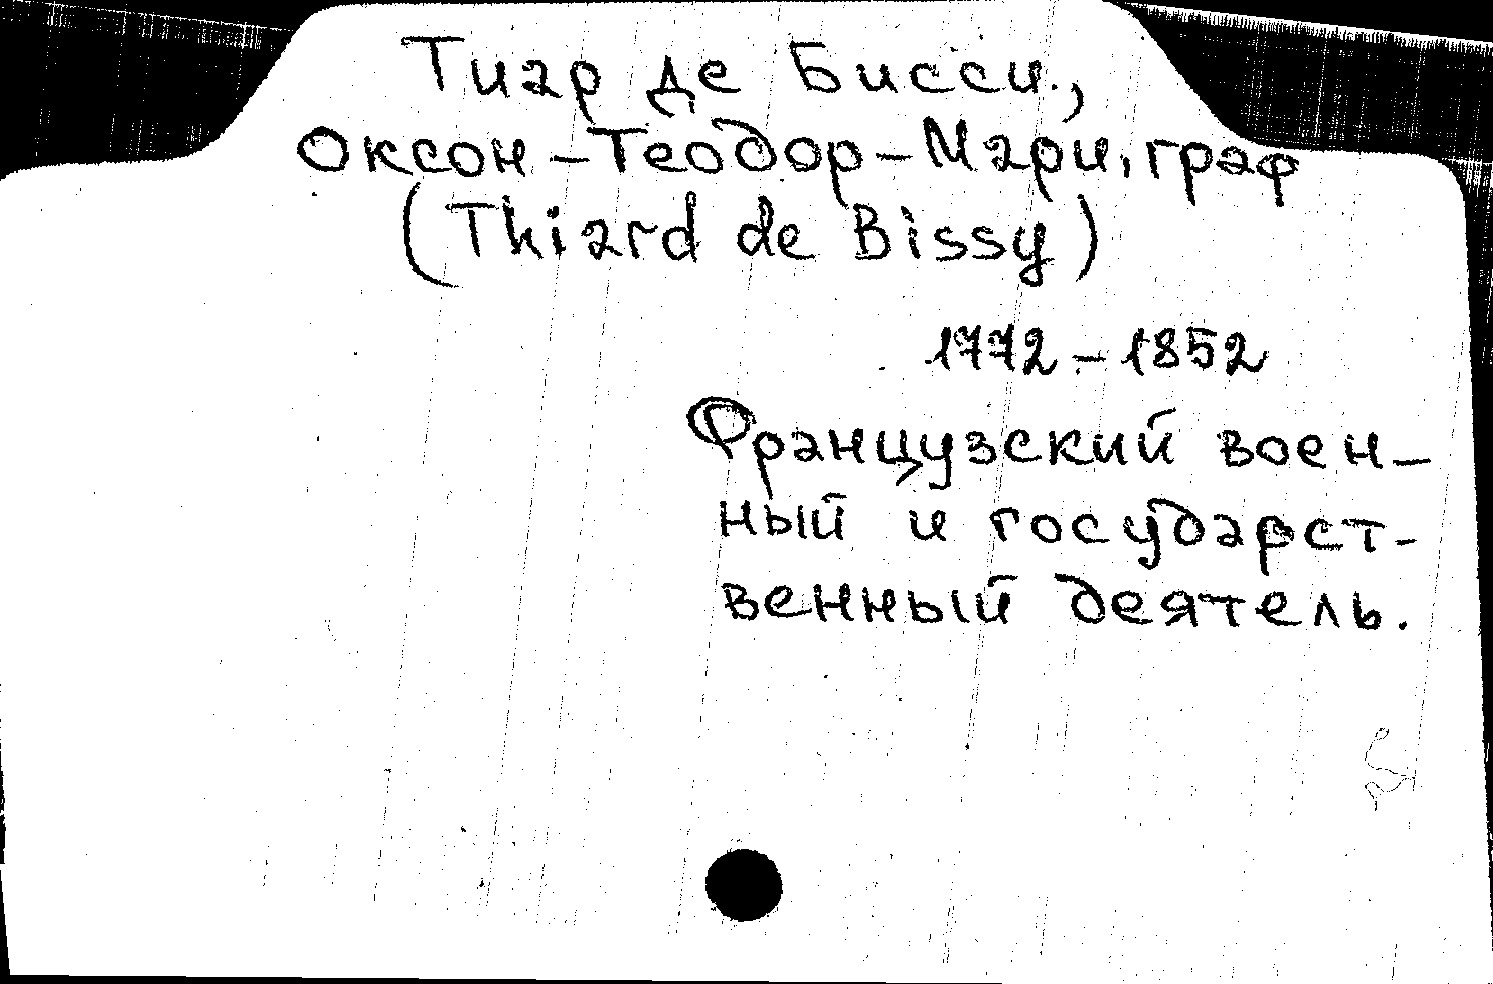 Тиар де Бисси.,
Оксон-Теодор-Мари, граф
(Thiard de Bissy)
1772-1852
Французский воен-
ный и государст-
венный деятель.